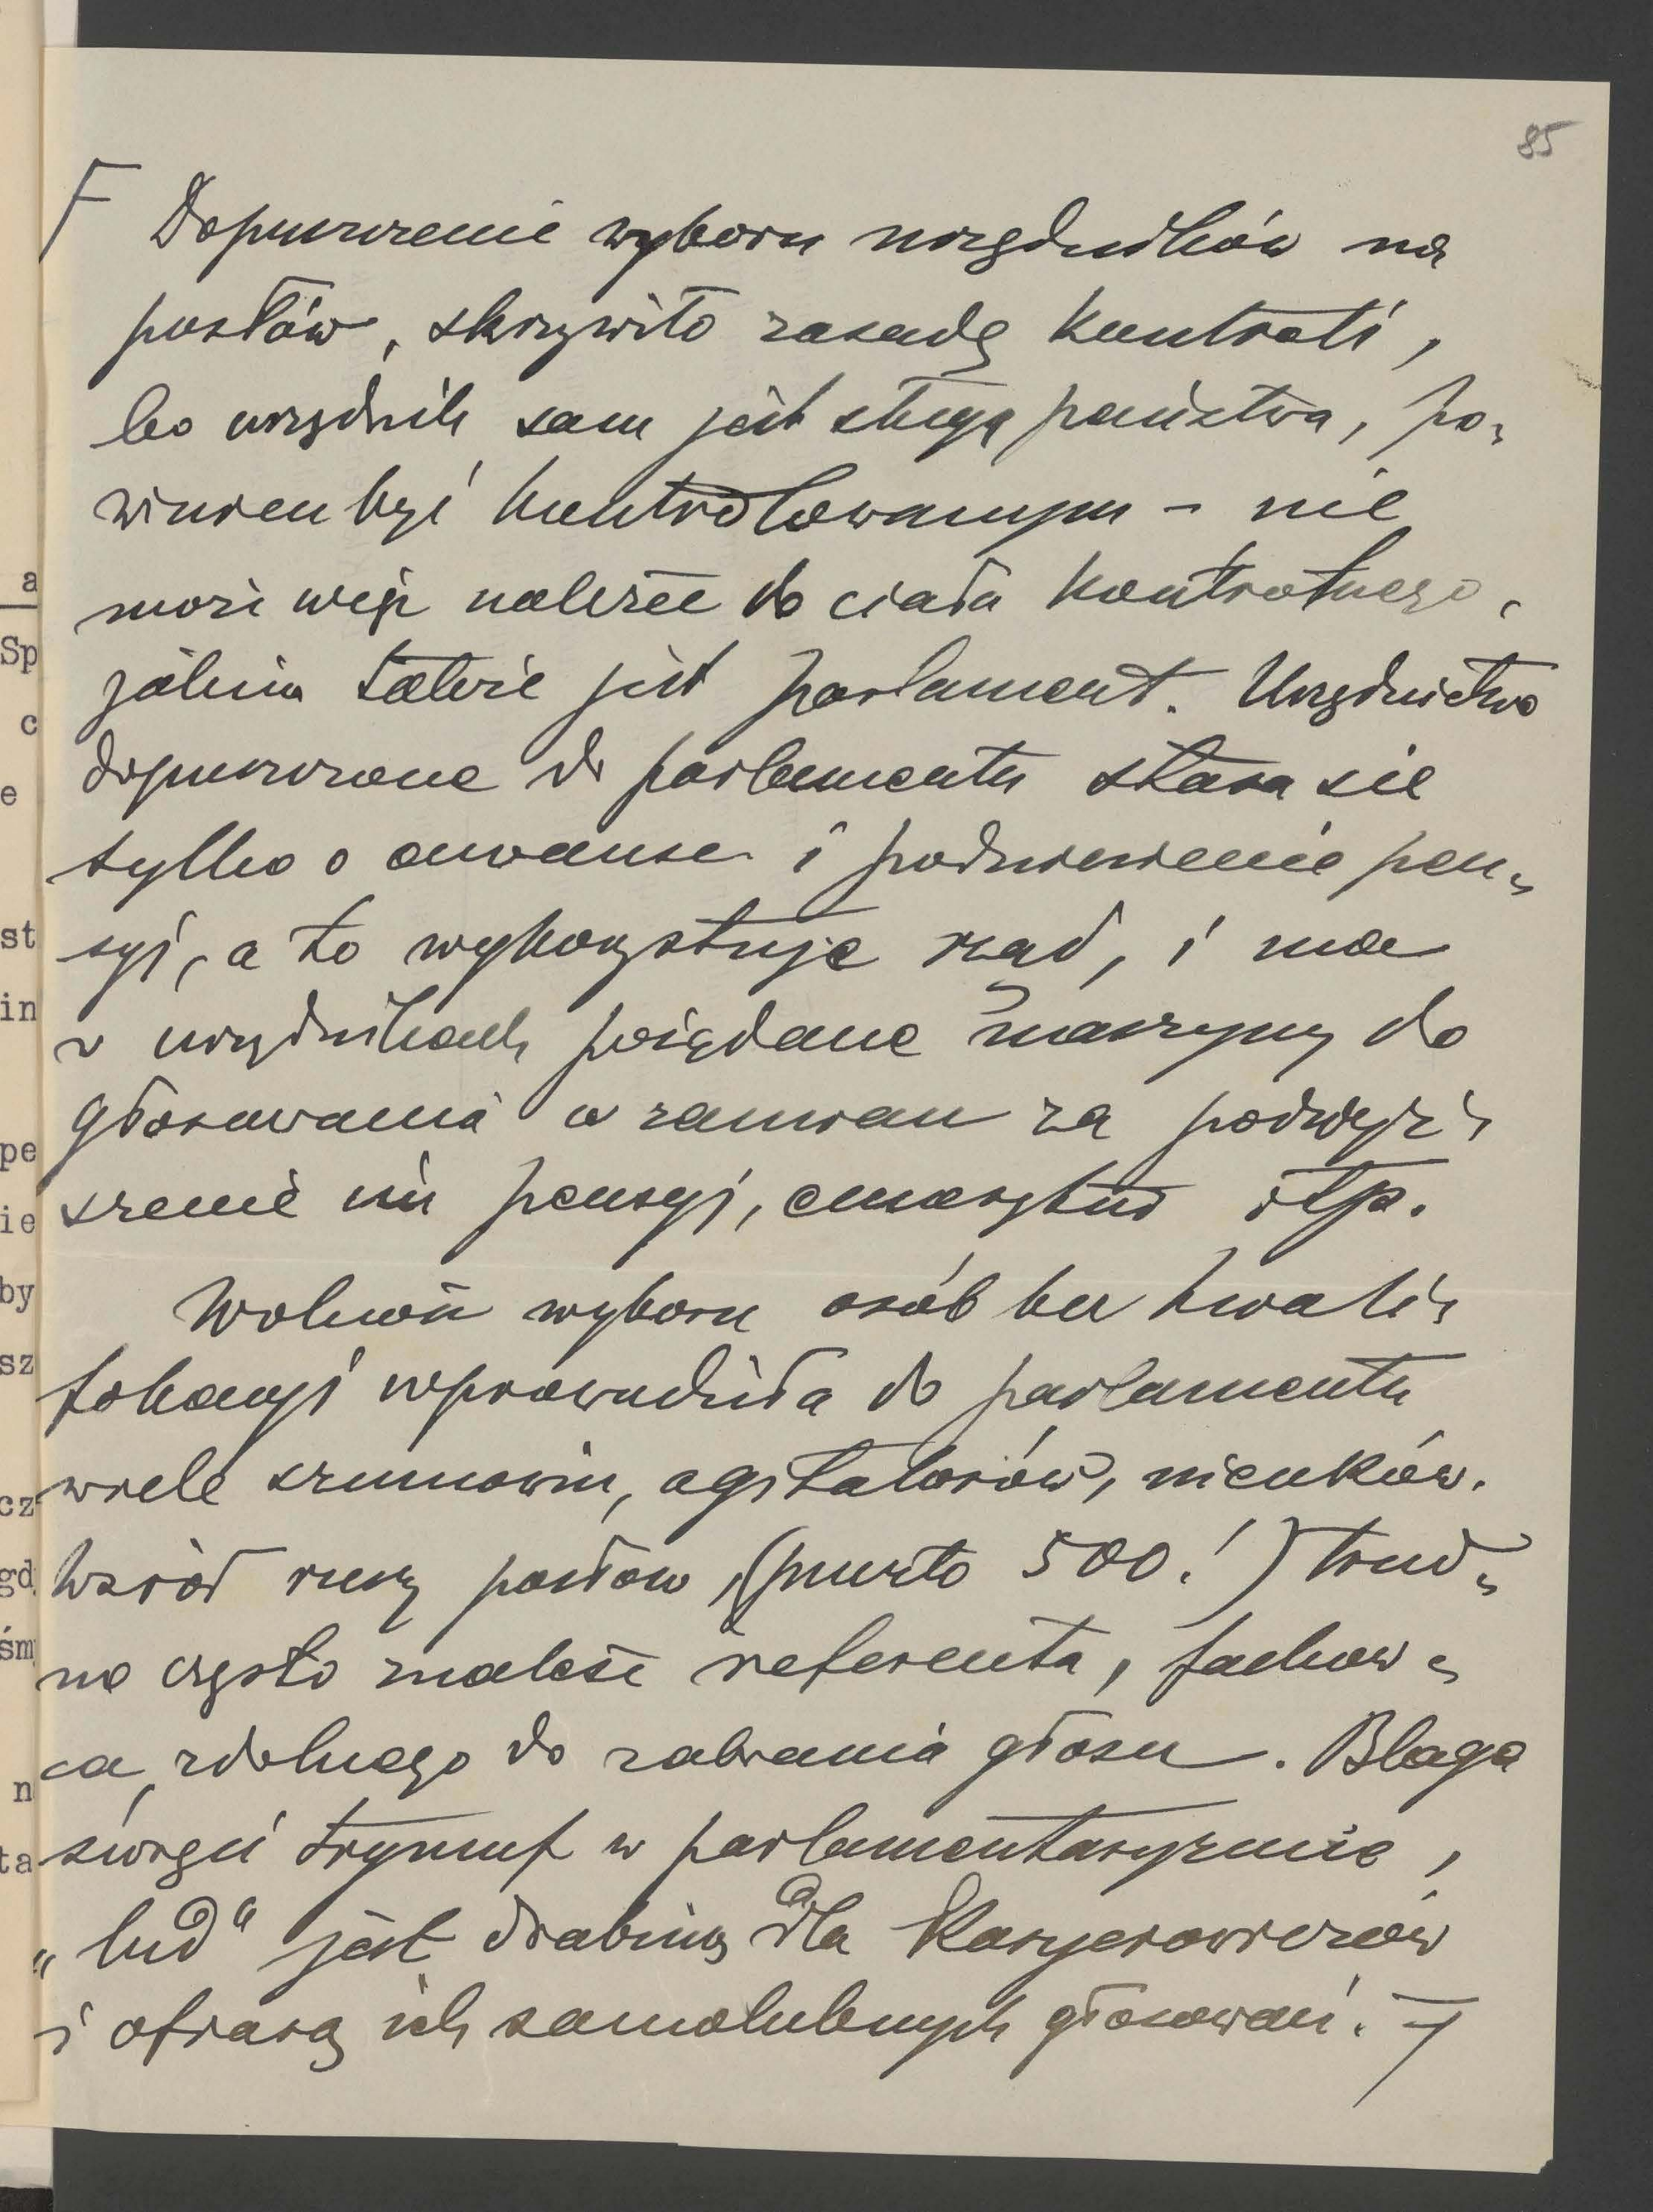 85
Dopuszczenie wyboru urzędników na
posłów, skrzywiło zasadę kontroli,
bo urzędnik sam jest sługą państwa, po-
winien być kontrolowanym - nie
może więc należeć do ciała kontrolnego,
jakim także jest parlament. Urzędnictwo
dopuszczone do parlamentu stara się
tylko o awanse i podniesienie pen-
syj, a to wykorzystuje rząd, i ma
w urzędnikach pożądane maszyny do
głosowania w zamian za podwyż-
szenie im pensyj, emerytur itp.
Wolność wyboru osób bez kwali-
fikacyj wprowadziła do parlamentu
wiele szumowin, agitatorów, nieuków.
Wśród rzeszy posłów, (przeszło 500!) trud-
no często znaleść referenta, fachow-
ca, zdolnego do zabrania głosu. Blaga
święci tryumf w parlamentaryzmie,
„lud“ jest drabiną dla karyerowiczów
i ofiarą ich samolubnych głosowań.
a
Sp
c
e
st
in
pe
ie
by
sz
cz
gd
śm
n
ta